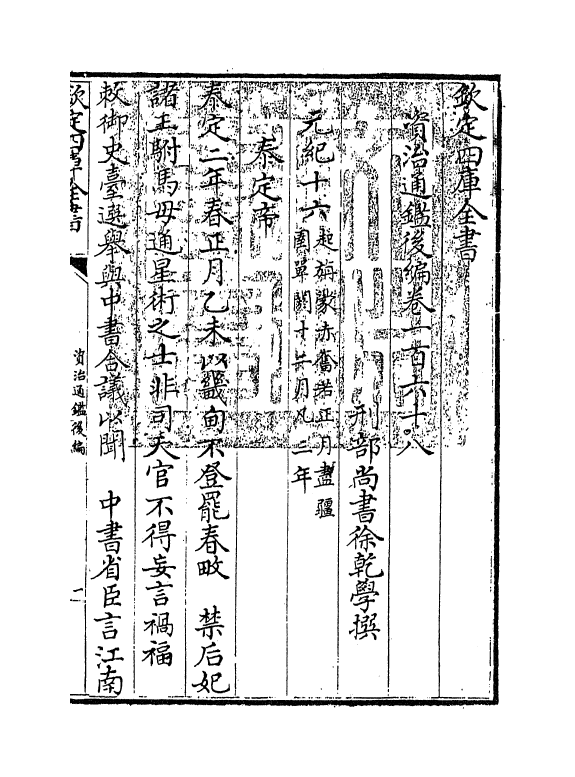 欽定四庫全書
資治通鑑後編卷一百六十八
刑部尚書徐乾學撰
元紀十六起旃蒙赤奮若正月盡彊
圉單閼十二月凡三年
泰定帝
泰定二年春正月乙未以畿甸不登罷春畋　禁后妃
諸王駙馬毋通星術之士非司天官不得妄言禍福
敕御史臺選舉與中書合議以聞　中書省臣言江南
欽定四庫全書
資治通鑑後編